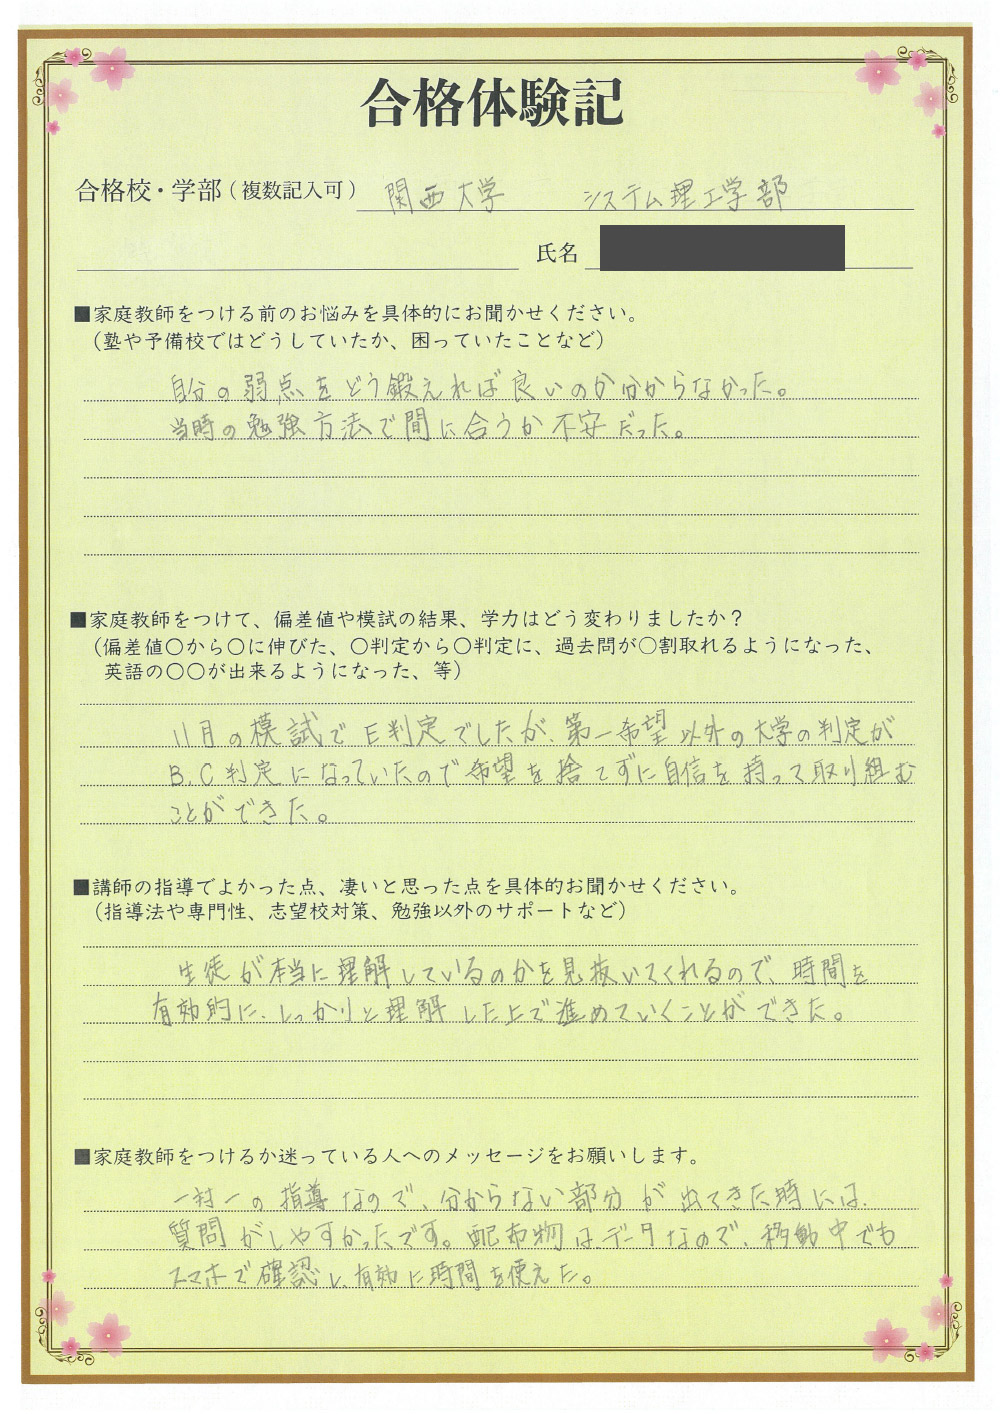 合格体験記
合格校・学部（複数記入可） 関西大学 システム理工学部
氏名
■家庭教師をつける前のお悩みを具体的にお聞かせください。
（塾や予備校ではどうしていたか、困っていたことなど）
自分の弱点をどう鍛えれば良いのか分からなかった。
当時の勉強方法で間に合うか不安だった。
■家庭教師をつけて、偏差値や模試の結果、学力はどう変わりましたか？
（偏差値〇から〇に伸びた、〇判定から〇判定に、過去問が〇割取れるようになった、
英語の〇〇が出来るようになった、等）
11月の模試でE判定でしたが、第一希望以外の大学の判定が
B、C判定になっていたので希望を捨てずに自信を持って取り組む
ことができた。
■講師の指導でよかった点、凄いと思った点を具体的お聞かせください。
（指導法や専門性、志望校対策、勉強以外のサポートなど）
生徒が本当に理解しているのかを見抜いてくれるので、時間を
有効的に、しっかりと理解した上で進めていくことができた。
■家庭教師をつけるか迷っている人へのメッセージをお願いします。
一対一の指導なので、分からない部分が出てきた時には、
質問がしやすかったです。配布物はデータなので、移動中でも
スマホで確認し、有効に時間を使えた。